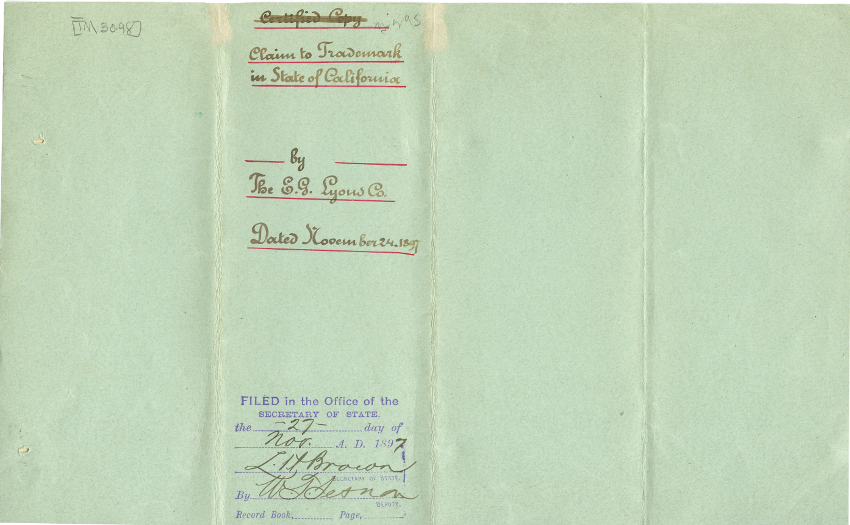 [TM 3098]
Certified Copy
Claim to Trademark
in State of California
by
The E.G. Lyons Co.
Dated November 24. 1897
FILED in the Office of the
SECRETARY OF STATE.
the -27- day of
Nov. A. D. 1897
L. H. Brown
SECRETARY OF STATE.
By
DEPUTY.
Record Book, Page,